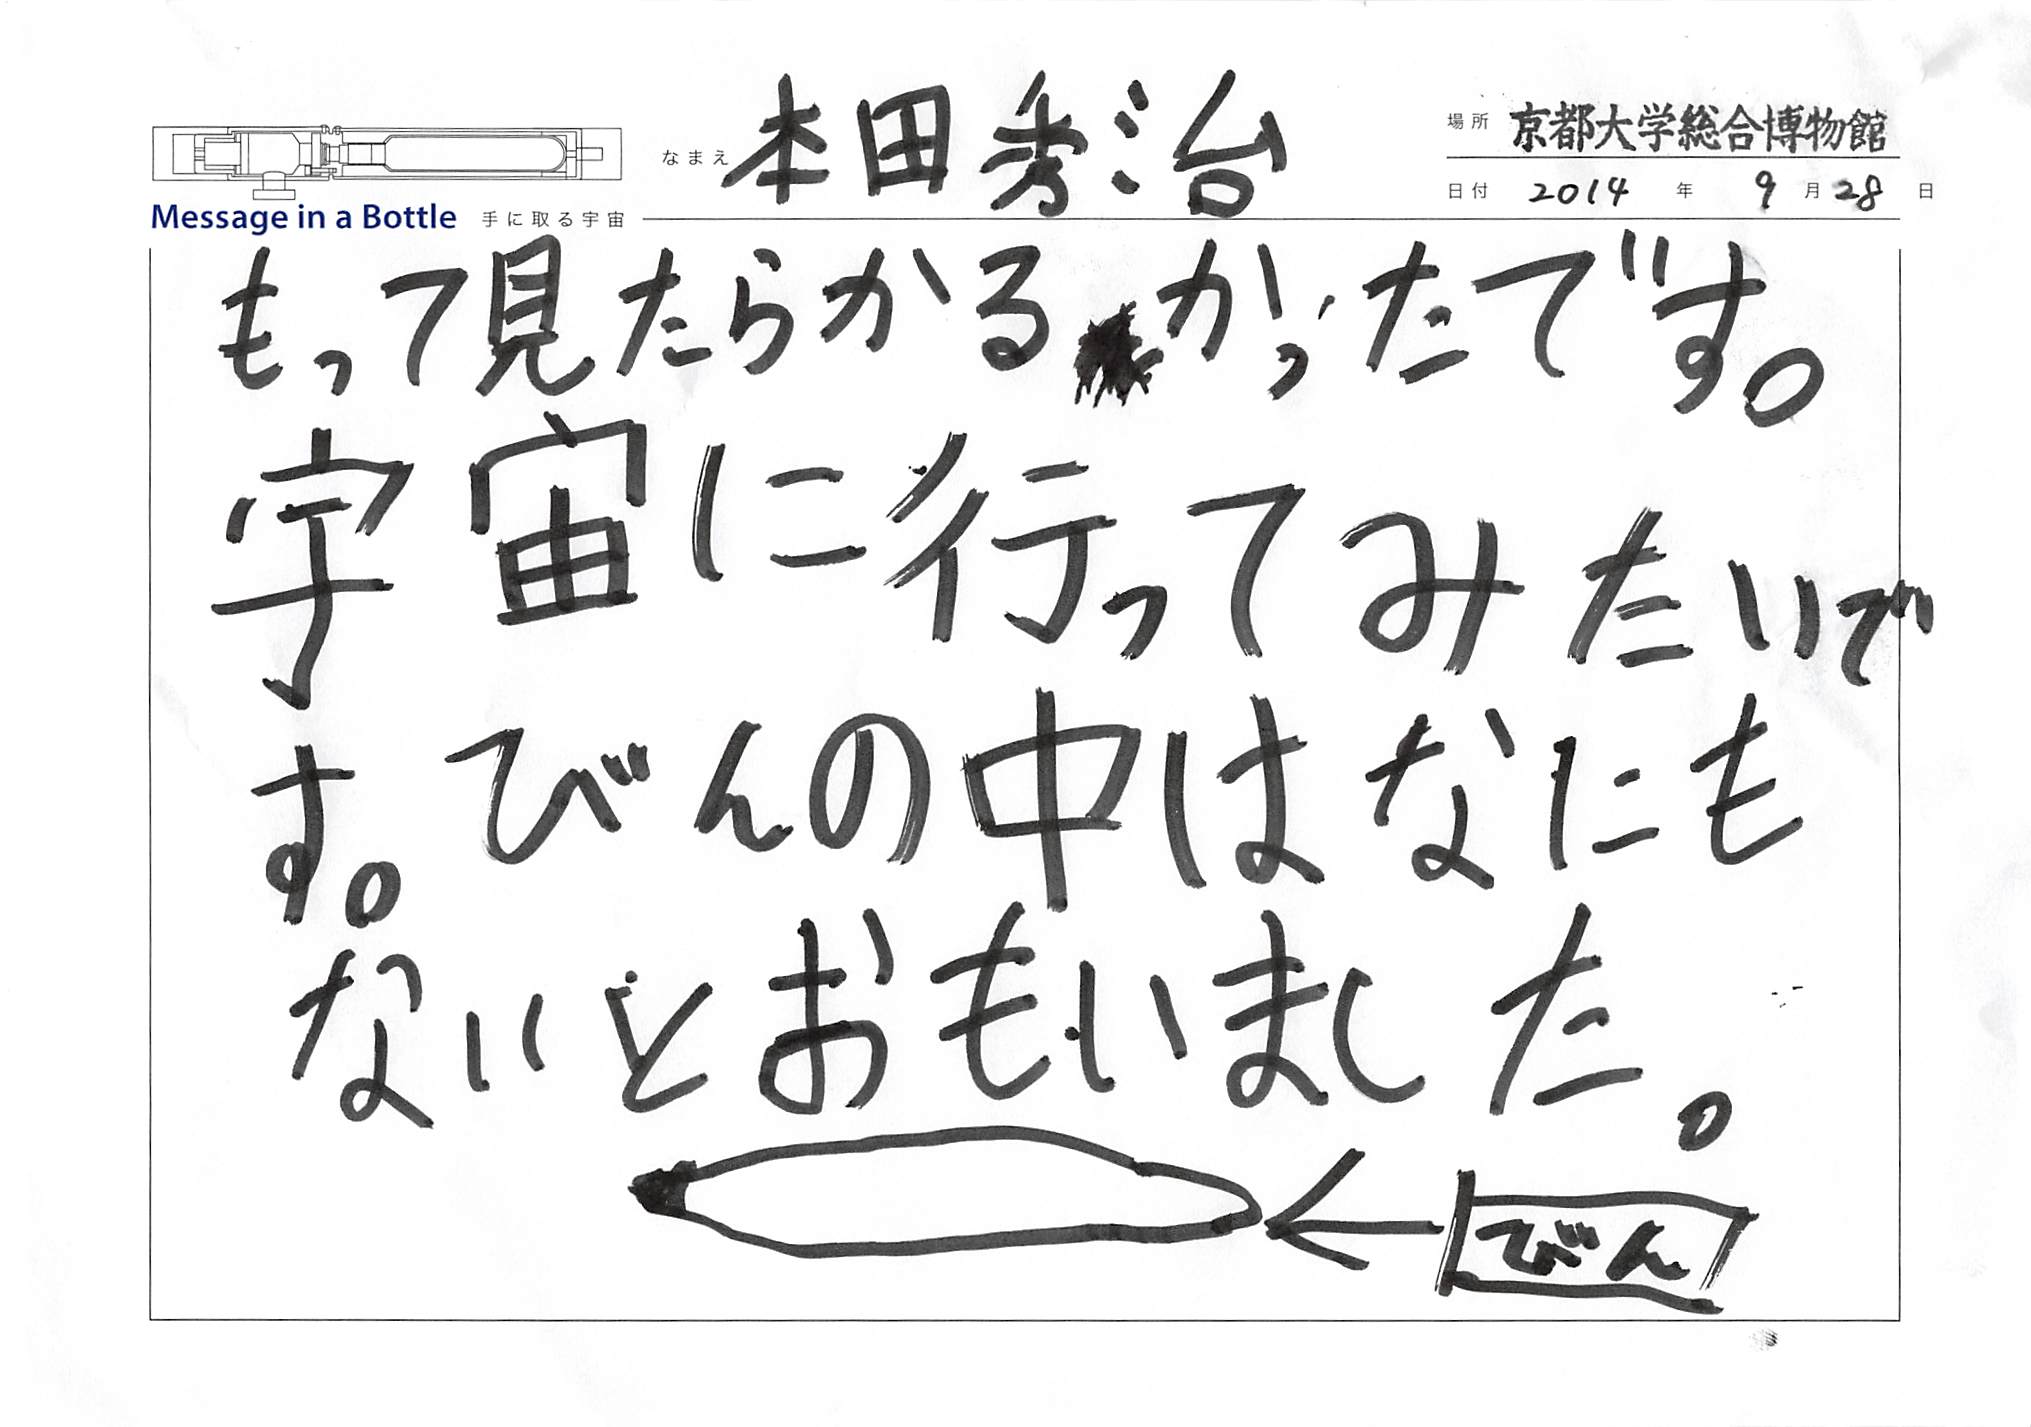 なまえ 本田秀治
場所 京都大学総合博物館
日付 2014 年 9 月 28 日
Message in a Bottle 手に取る宇宙
もって見たらかるかったです。
宇宙に行ってみたいで
す。びんの中はなにも
ないとおもいました。
びん